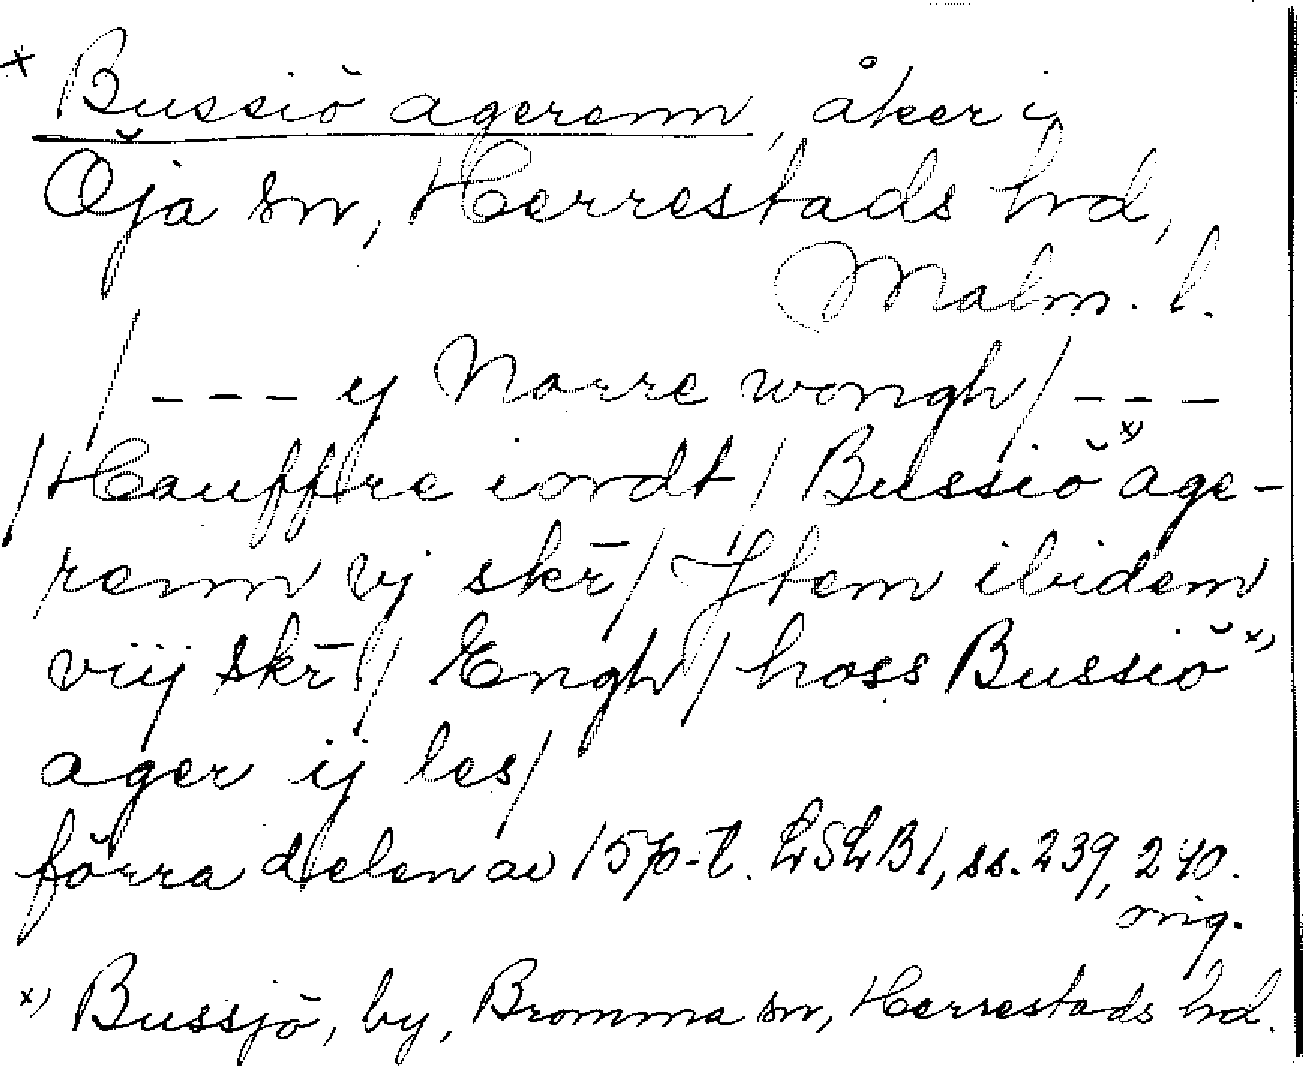 * Bussiö agerenn, åker i
Öja sn, Herrestads hrd,
Malm. l.
/ --- ij Norre wongh / ---
/ Hauffre iordt / Bussiö x) age-
renn vj skr̄ / Jtem ibidem
viij skr̄ / Engh / hoss Bussiö x)
ager ij les /
förra delen av 15/0-t. LSLB1, ss. 239, 240.
orig.
x) Bussjö, by, Bromma sn, Herrestads hrd.